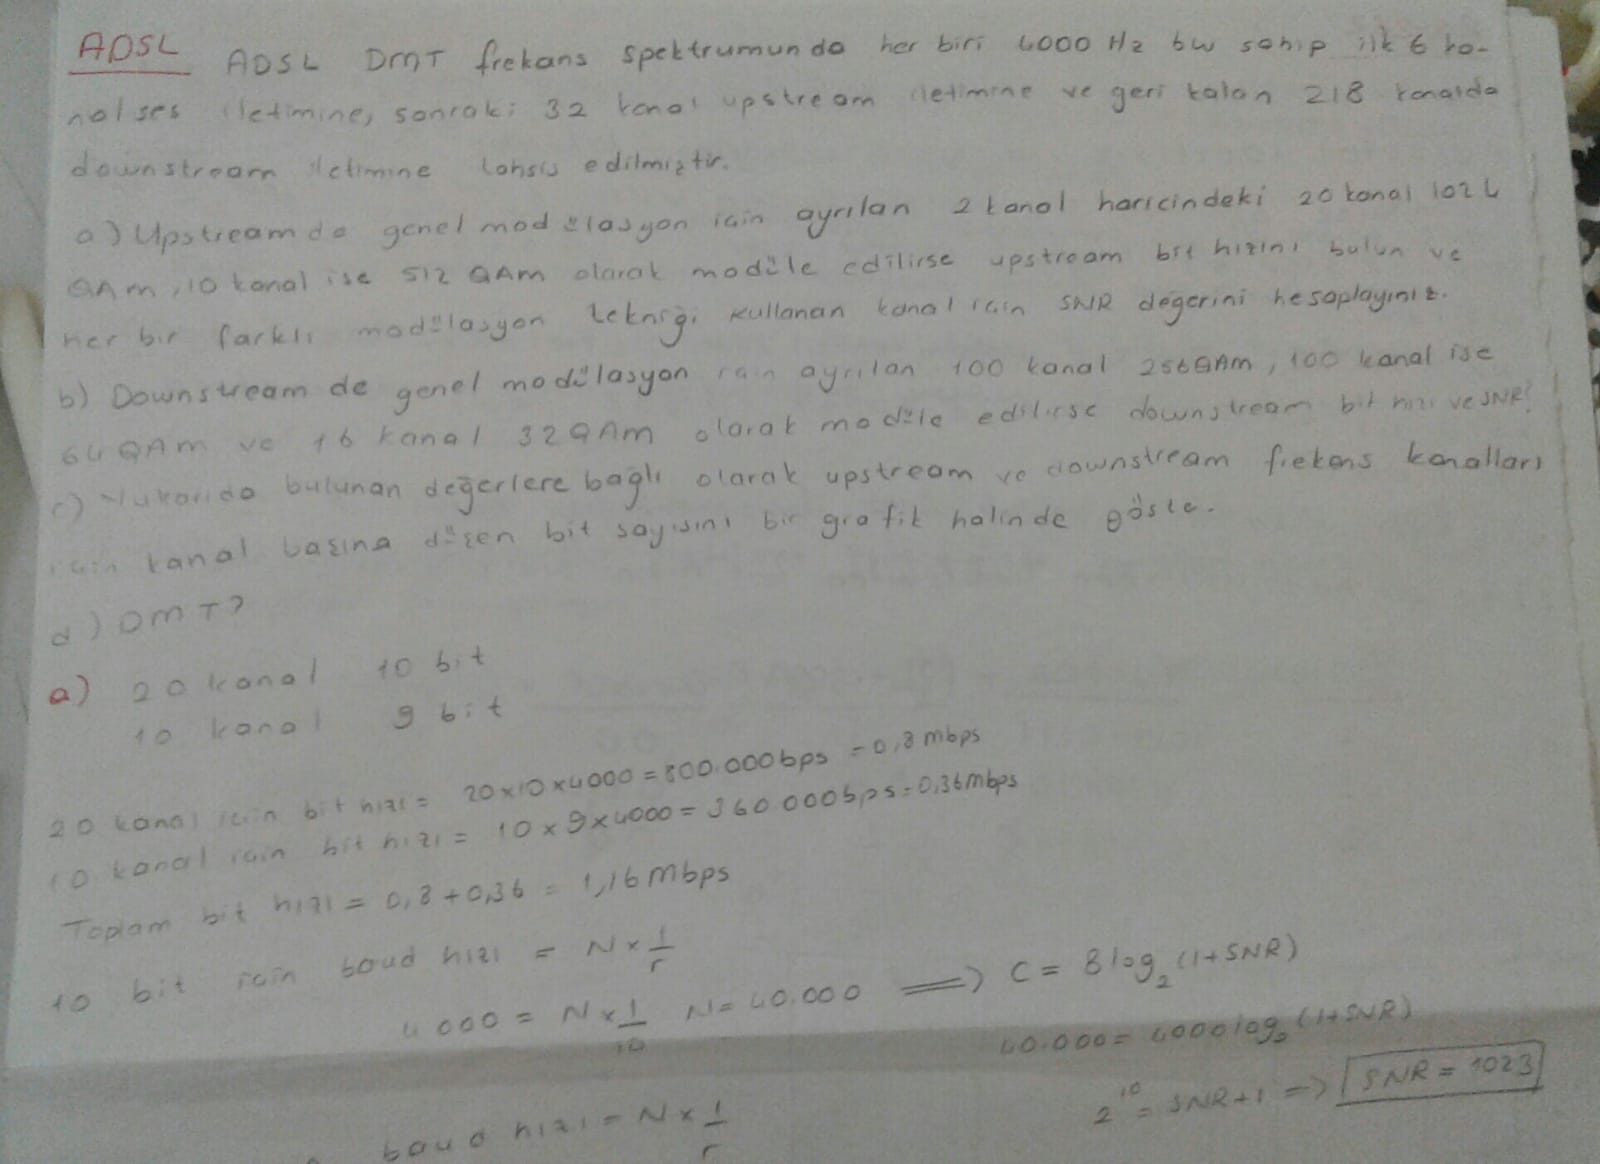 ADSL ADSL DMT frekans spektrumunda her biri 4000 Hz bw sahip ilk 6 ka-
nal ses iletimine, sonraki 32 kanal upstream iletimine ve geri kalan 218 kanalda
downstream iletimine tahsis edilmiştir.
a) Upstreamde genel modülasyon için ayrılan 2 kanal haricindeki 20 kanal 1024
QAM, 10 kanal ise 512 QAM olarak modüle edilirse upstream bit hızını bulun ve
her bir farklı modülasyon tekniği kullanan kanal için SNR değerini hesaplayınız.
b) Downstream de genel modülasyon için ayrılan 100 kanal 256QAM, 100 kanal ise
64QAM ve 16 kanal 32QAM olarak modüle edilirse downstream bit hızı ve SNR?
c) Yukarıda bulunan değerlere bağlı olarak upstream ve downstream frekans kanalları
için kanal başına düşen bit sayısını bir grafik halinde göste.
d) DMT?
a) 20 kanal 10 bit
10 kanal 9 bit
20 kanal için bit hızı = 20x10x4000 = 800.000bps = 0,8 mbps
10 kanal için bit hızı = 10 x 9 x 4000 = 360 000bps = 0,36mbps
Toplam bit hızı = 0,8 + 0,36 = 1,16 mbps
10 bit için baud hızı = N x 1/r
4000 = N x 1/10 N = 40.000 => C = B log2 (1+SNR)
40.000 = 4000 log2 (1+SNR)
2^10 = SNR+1 => SNR = 1023
baud hızı = N x 1/r